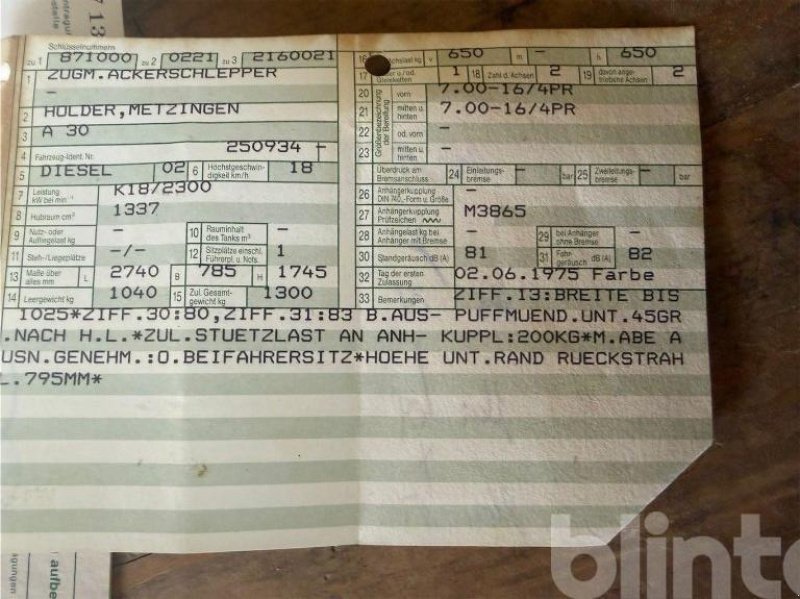 Schlüsselnummern
zu 1 871000 zu 2 0221 zu 3 2160021
1 ZUGM.ACKERSCHLEPPER
–
2 HOLDER,METZINGEN
3 A 30
4 Fahrzeug-Ident. Nr. 250934
5 DIESEL 02 6 Höchstgeschwin-digkeit km/h 18
7 Leistung kW bei min⁻¹ K18/2300
8 Hubraum cm³ 1337
9 Nutz- oder Aufliegelast kg – 10 Rauminhalt des Tanks m³ –
11 Steh-/Liegeplätze –/– 12 Sitzplätze einschl. Führerpl. u. Nots. 1
13 Maße über alles mm L 2740 B 785 H 1745
14 Leergewicht kg 1040 15 Zul. Gesamt-gewicht kg 1300
16 kg v 650 m – h 650
17 u./od. Gleisketten 1 18 Zahl d. Achsen 2 19 davon ange-triebene Achsen 2
Größenbezeichnung der Bereifung
20 vorn 7.00-16/4PR
21 mitten u. hinten 7.00-16/4PR
22 od. vorn –
23 mitten u. hinten –
Überdruck am Bremsanschluss 24 Einleitungs-bremse – bar 25 Zweileitungs-bremse – bar
26 Anhängerkupplung DIN 740.. Form u. Größe –
27 Anhängerkupplung Prüfzeichen M3865
28 Anhängelast kg bei Anhänger mit Bremse – 29 bei Anhänger ohne Bremse –
30 Standgeräusch dB (A) 81 31 Fahr-geräusch dB (A) 82
32 Tag der ersten Zulassung 02.06.1975 Farbe
33 Bemerkungen ZIFF.13:BREITE BIS
1025*ZIFF.30:80,ZIFF.31:83 B.AUS- PUFFMUEND.UNT.45GR
.NACH H.L.*ZUL.STUETZLAST AN ANH- KUPPL:200KG*M.ABE A
USN.GENEHM.:O.BEIFAHRERSITZ*HOEHE UNT.RAND RUECKSTRAH
L.795MM*